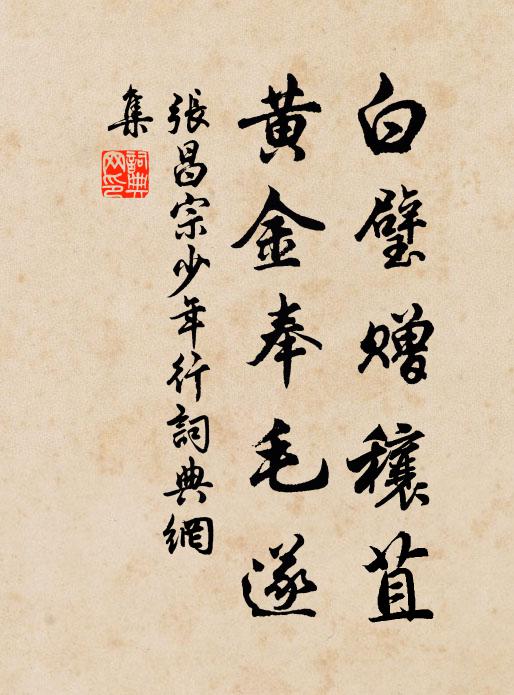 白璧赠穰苴
黄金奉毛遂
張昌宗少年行詞典網
集
詞典
网印